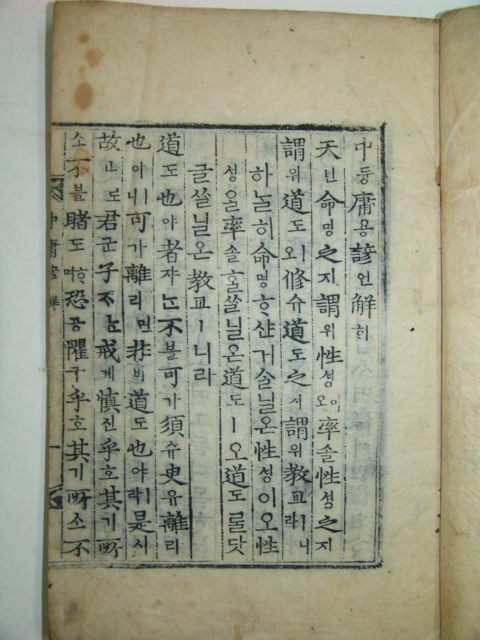 中듕庸용諺언解ᄒᆡ
天텬命명之지謂위性셩이오率솔性셩之지
謂위道도ㅣ오修슈道도之지謂위教교ㅣ니라
하ᄂᆞᆯ히命명ᄒᆞ샨거ᄉᆞᆯ닐온性셩이오性
셩을率솔ᄒᆞᆯᄊᆞᆯ닐온道도ㅣ오道도ᄅᆞᆯ닷
글ᄊᆞᆯ닐온教교ㅣ니라
道도也야者쟈ᄂᆞᆫ不블可가須슈臾유離리
也야ㅣ니可가離리면非비道도也야ㅣ라是시
故고로君군子ᄌᆞᄂᆞᆫ戒계慎신乎호其기所
소不블睹도ᄒᆞ며恐공懼구乎호其기所소不
中庸諺解
一